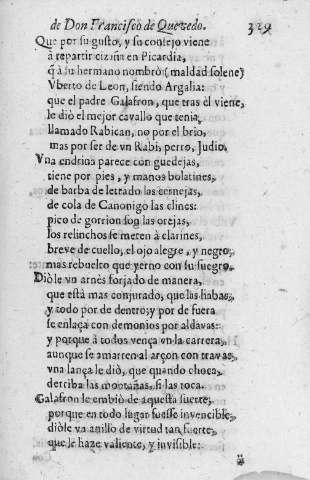 de Don Francisco de Quevedo. 329
Que por su gusto, y su consejo viene
à repartir cizaña en Picardia,
q̃ à su hermano nombrò (maldad solene)
Vberto de Leon, siendo Argalia:
que el padre Galafron, que tras el viene,
le diò el mejor cavallo que tenia,
llamado Rabican, no por el brio,
mas por ser de vn Rabi, perro, Judio.
Vna endrina parece con guedejas,
tiene por pies, y manos bolatines,
de barba de letrado las cernejas,
de cola de Canonigo las clines:
pico de gorrion son las orejas,
los relinchos se meten à clarines,
breve de cuello, el ojo alegre, y negro,
mas rebuelto que yerno con su suegro.
Diòle vn arnès forjado de manera,
que està mas conjurado, que las habas,
y todo por de dentro, y por de fuera
se enlaça con demonios por aldavas:
y porque à todos vença vn la carrera,
aunque se amarren al arçon con travas,
vna lança le diò, que quando choca,
derriba las montañas, si las toca.
Galafron le embiò de aquesta suerte,
porque en todo lugar fuesse invencible,
diòle vn anillo de virtud tan fuerte,
que le haze valiente, y invisible: